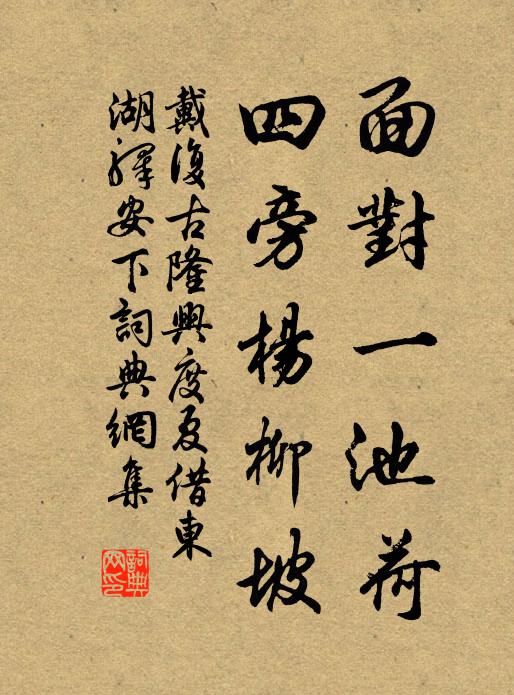 面對一池荷
四旁楊柳坡
戴復古隆興度夏借東
湖驛安下詞典網集
詞典網印